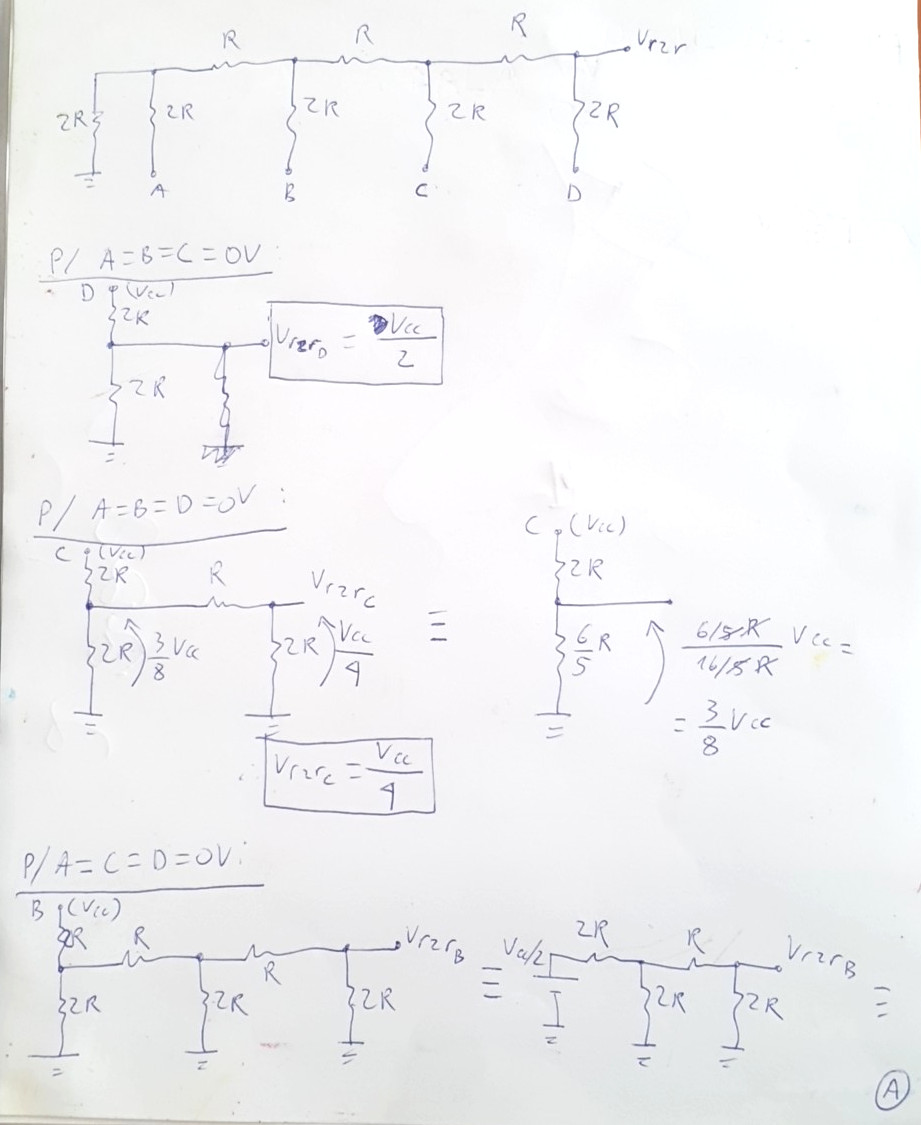 R R R Vr2r
2R 2R 2R 2R 2R
A B C D
P/ A=B=C=0V
D (Vcc)
2R
Vr2rD = Vcc/2
2R
P/ A=B=D=0V:
C (Vcc) C (Vcc)
2R R Vr2rC 2R
2R 3/8 Vcc 2R Vcc/4 ≡ 6/5 R (6/5R)/(16/5R) Vcc =
= 3/8 Vcc
∴ Vr2rC = Vcc/4
P/ A=C=D=0V:
B (Vcc)
2R R R Vr2rB ≡ Vcc/2 2R R Vr2rB ≡
2R 2R 2R 2R 2R
A